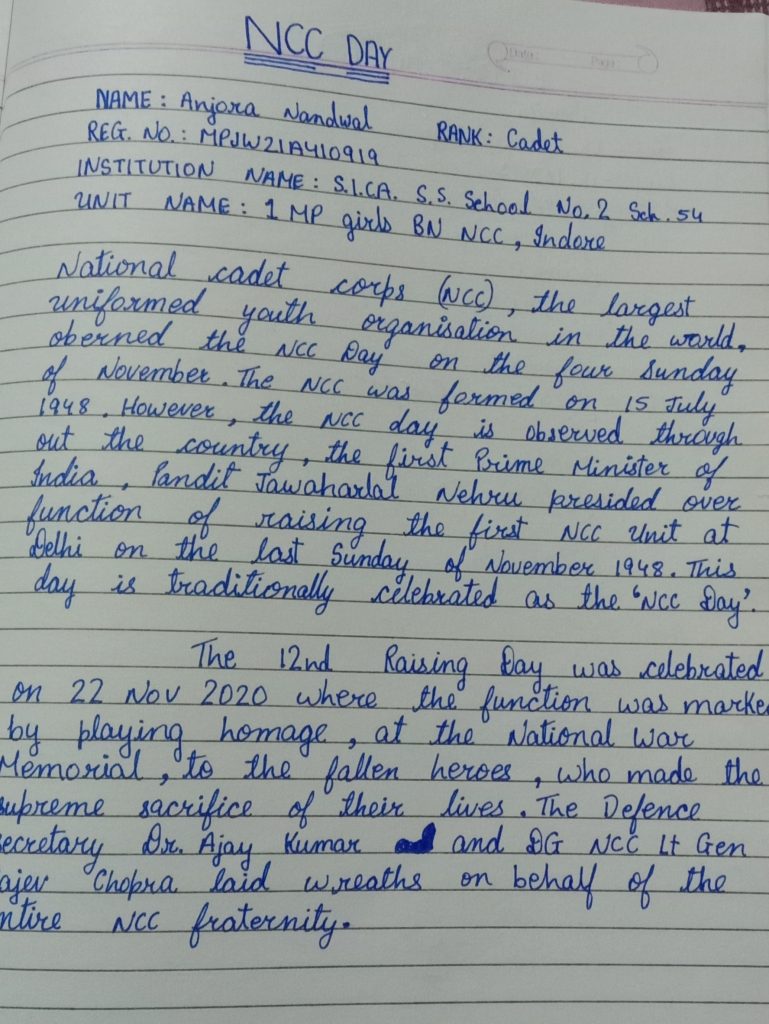 NCC DAY
NAME : Anjora Nandwal RANK : Cadet
REG. No. : MPJW21A410919
INSTITUTION NAME : S.I.CA. S.S. School No. 2 Sch. 54
UNIT NAME : 1 MP girls BN NCC, Indore
National cadet corps (NCC), the largest
uniformed youth organisation in the world,
oberned the NCC Day on the four Sunday
of November. The NCC was formed on 15 July
1948. However, the NCC day is observed through
out the country, the first Prime Minister of
India, Pandit Jawaharlal Nehru presided over
function of raising the first NCC Unit at
Delhi on the last Sunday of November 1948. This
day is traditionally celebrated as the 'NCC Day'.
The 12nd Raising Day was celebrated
on 22 Nov 2020 where the function was marke
by playing homage, at the National War
Memorial, to the fallen heroes, who made the
supreme sacrifice of their lives. The Defence
ecretary Dr. Ajay Kumar and DG NCC Lt Gen
ajev Chopra laid wreaths on behalf of the
ntire NCC fraternity.